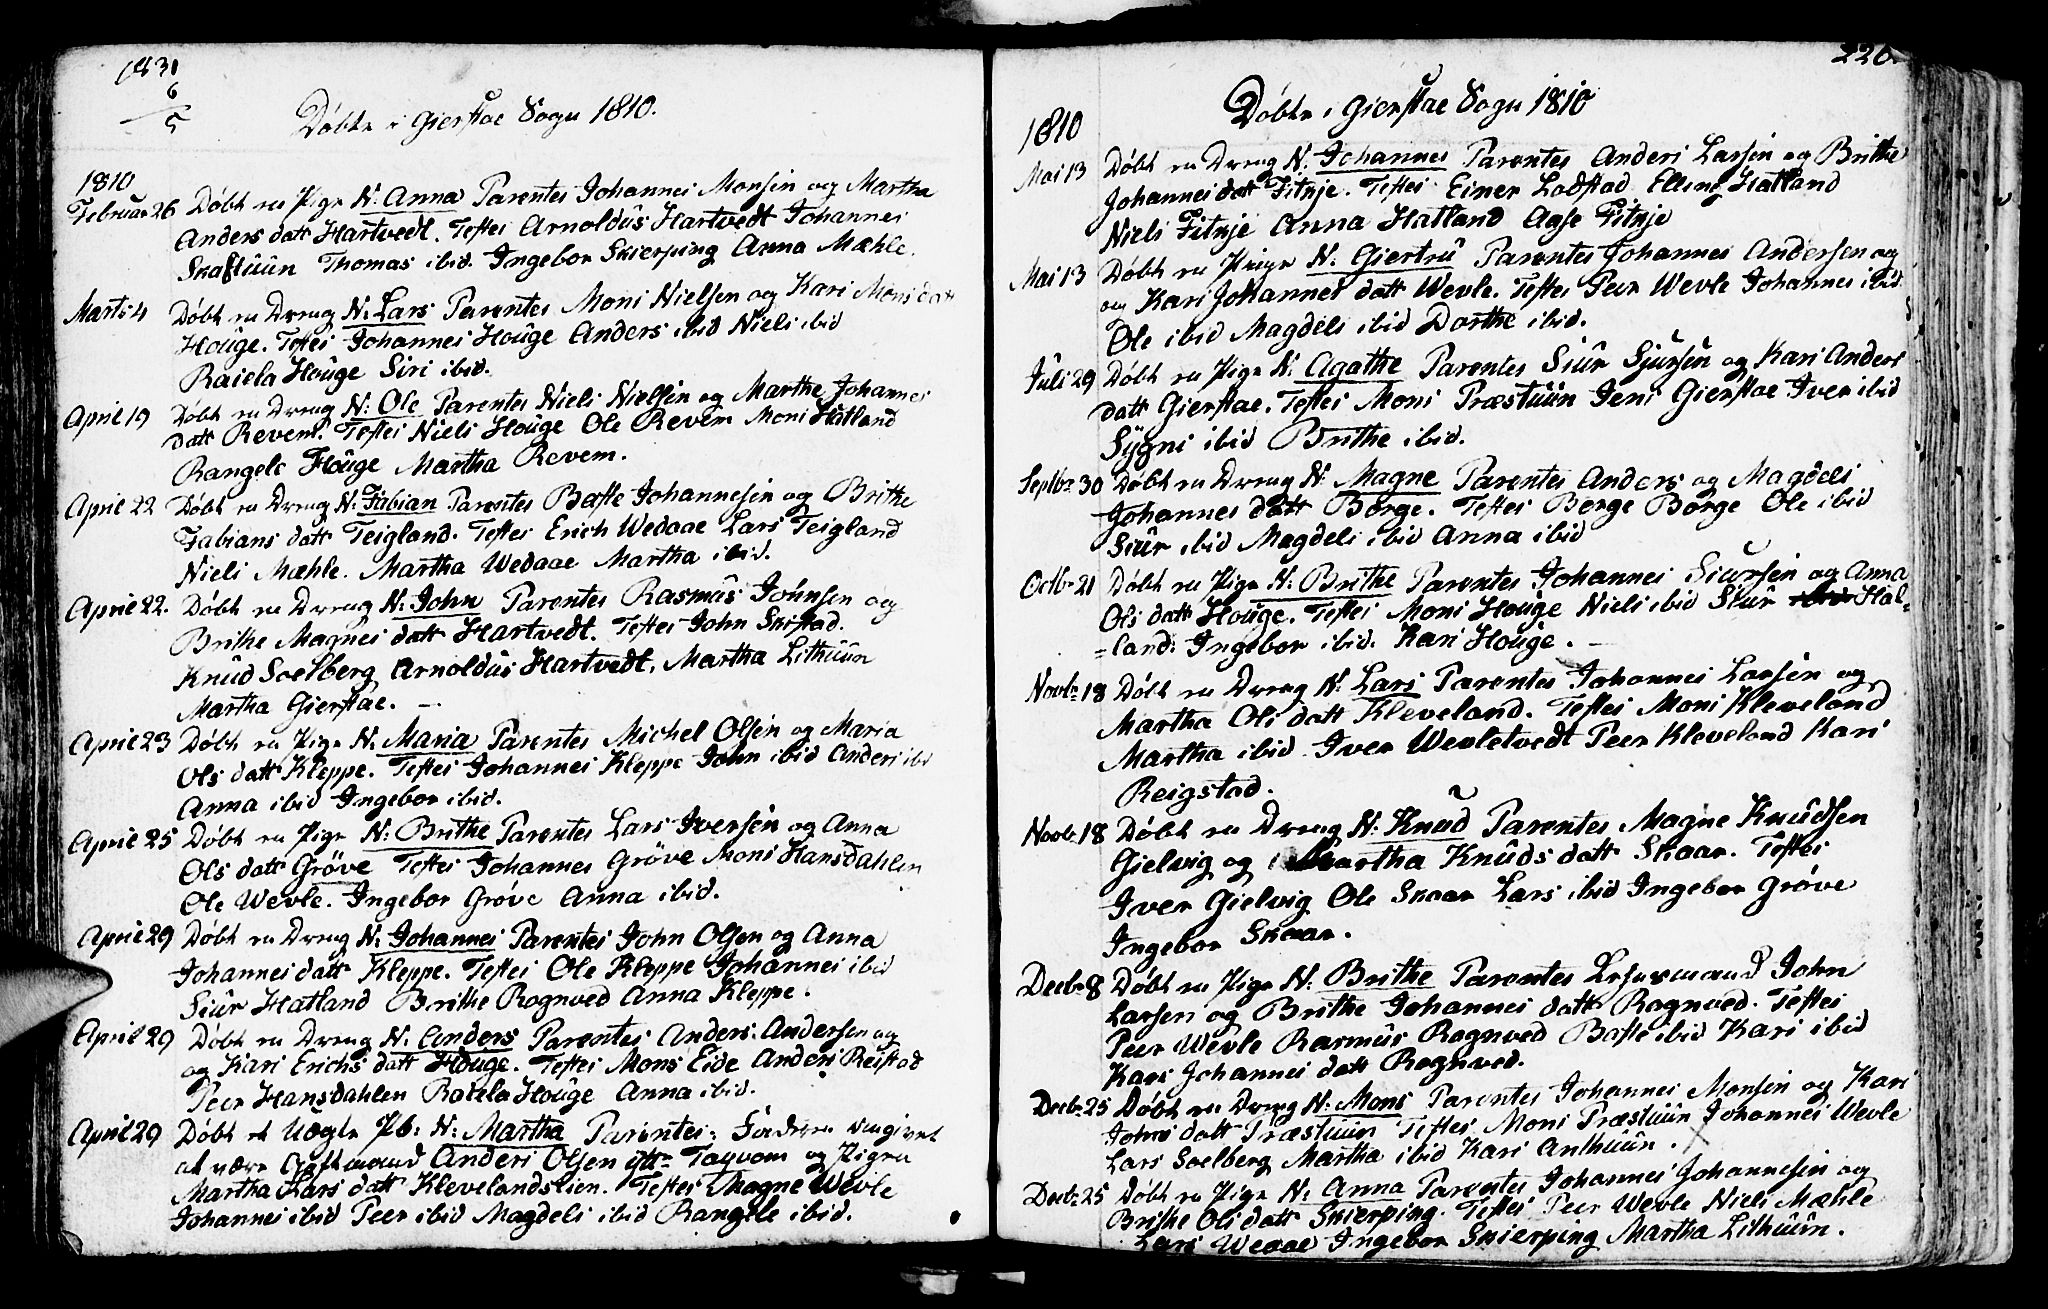 1831
6
5
Døbte i Gierstae Sogn 1810.
1810
Februar 26 Døbt en Pige N: Anna Parentes Johannes Monsen og Martha
Anders datt Hartvedt. Testes Arnoldus Hartvedt Johannes
Skaftuun Thomas ibid. Ingebor Skierping Anna Mæhle.
Marti 4 Døbt en Dreng N: Lars Parentes Mons Nielsen og Kari Mons datt
Houge. Testes Johannes Houge Anders ibid Niels ibid
Raiela Houge Siri ibid.
April 19 Døbt en Dreng N: Ole Parentes Niels Nielsen og Marthe Johannes
datt Revem. Testes Niels Houge Ole Revem Mons Hatland
Rangele Houge Martha Revem.
April 22 Døbt en Dreng N: Fabian Parentes Baste Johannesen og Brithe
Fabians datt Teigland. Testes Erich Wedaae Lars Teigland
Niels Mæhle. Martha Wedaae Martha ibid.
April 22. Døbt en Dreng N: John Parentes Rasmus Jonnsen og
Brithe Magnes datt Hartvedt. Testes John Skistad.
Knud Soelberg Arnoldus Hartvedt. Martha Lithuun
Martha Gierstae.
April 23 Døbt en Pige N. Maria Parentes Michel Olsen og Maria
Ols datt Kleppe. Testes Johannes Kleppe John ibid Anders ibd
Anna ibid Ingebor ibid.
April 25 Døbt en Pige N: Brithe Parentes Lars Iversen og Anna
Ols datt Grøve Testes Johannes Grøve Mons Hansdahlen
Ole Wevle. Ingebor Grøve Anna ibid.
April 29 Døbt en Dreng N: Johannes Parentes John Olsen og Anna
Johannes datt Kleppe. Testes Ole Kleppe Johannes ibid
Siur Hatland Brithe Rognved Anna Kleppe.
April 29 Døbt en Dreng N. Anders Parentes Anders Andersen og
og Kari Erichs datt Houge. Testes Mons Eide Anders Reistad
Peer Hansdahlen Raiela Houge Anna ibid.
April 29 Døbt et Uægte Pb: N: Martha Parentes: Faderen angivet
at være Gift mand Anders Olsen ytt: Tagvom og Pigen
Martha Lars datt Klevelandslien. Testes Magne Wevle
Johannes ibid Peer ibid Magdeli ibid Rangele ibid.
226.
Døbte i Gierstae Sogn 1810
1810
Mai 13 Døbt en Dreng N. Johannes Parentes Anders Larsen og Brithe
Johannes datt Fitnje. Testes Einer Lodstad Elling Hatland
Niels Fitnje Anna Hatland Aase Fitnje
Mai 13 Døbt en Peige N. Giertru Parentes Johannes Andersen og
og Kari Johannes datt Wevle. Testes Peer Wevle Johannes ibid.
Ole ibid Magdeli ibid Dorthe ibid.
Juli 29 Døbt en Pige N. Agathe Parentes Siur Sjursen og Kari Anders
datt Gierstae. Testes Mons Præstuun Jens Gierstae Iver ibid
Sygni ibid Brithe ibid.
Septbr 30 Døbt en Dreng N: Magne Parentes Anders og Magdeli
Johannes datt Borge. Testes Borge Borge Ole ibid
Siur ibid Magdeli ibid Anna ibid
Octbr 21 Døbt en Pige N: Brithe Parentes Johannes Siursen og Anna
Ols datt Houge. Testes Mons Houge Niels ibid Siur Hal-
-land. Ingebor ibid. Kari Houge.
Novbr 18 Døbt en Dreng N. Lars Parentes Johannes Larsen og
Martha Ols datt Kleveland. Testes Mons Kleveland
Martha ibid Iver Wevletvedt Peer Kleveland Kari
Reigstad.
Novbr 18 Døbt en Dreng N: Knud Parentes Magne Knudsen
Gielvig og Martha Knuds datt Skaar. Testes
Iver Gielvig Ole Skaar Lars ibid Ingebor Grøve
Ingebor Skaar.
Decbr 8 Døbt en Pige N: Brithe Parentes Lensmand John
Larsen og Brithe Johannes datt Rognved. Testes
Peer Wevle Rasmus Rognved Baste ibid Kari ibid
Kari Johannes datt Rognved.
Decbr 25 Døbt en Dreng N: Mons Parentes Johannes Monsen og Kari
Johns datt Præstuun Testes Mons Præstuun Johannes Wevle
Lars Soelberg Martha ibid Kari Anthuun.
Decbr 25 Døbt en Pige N: Anna Parentes Johannes Johannesen og
Brithe Ols datt Skierping. Testes Peer Wevle Niels Mæhle
Lars Wedaae Ingebor Skierping Martha Lithuun.